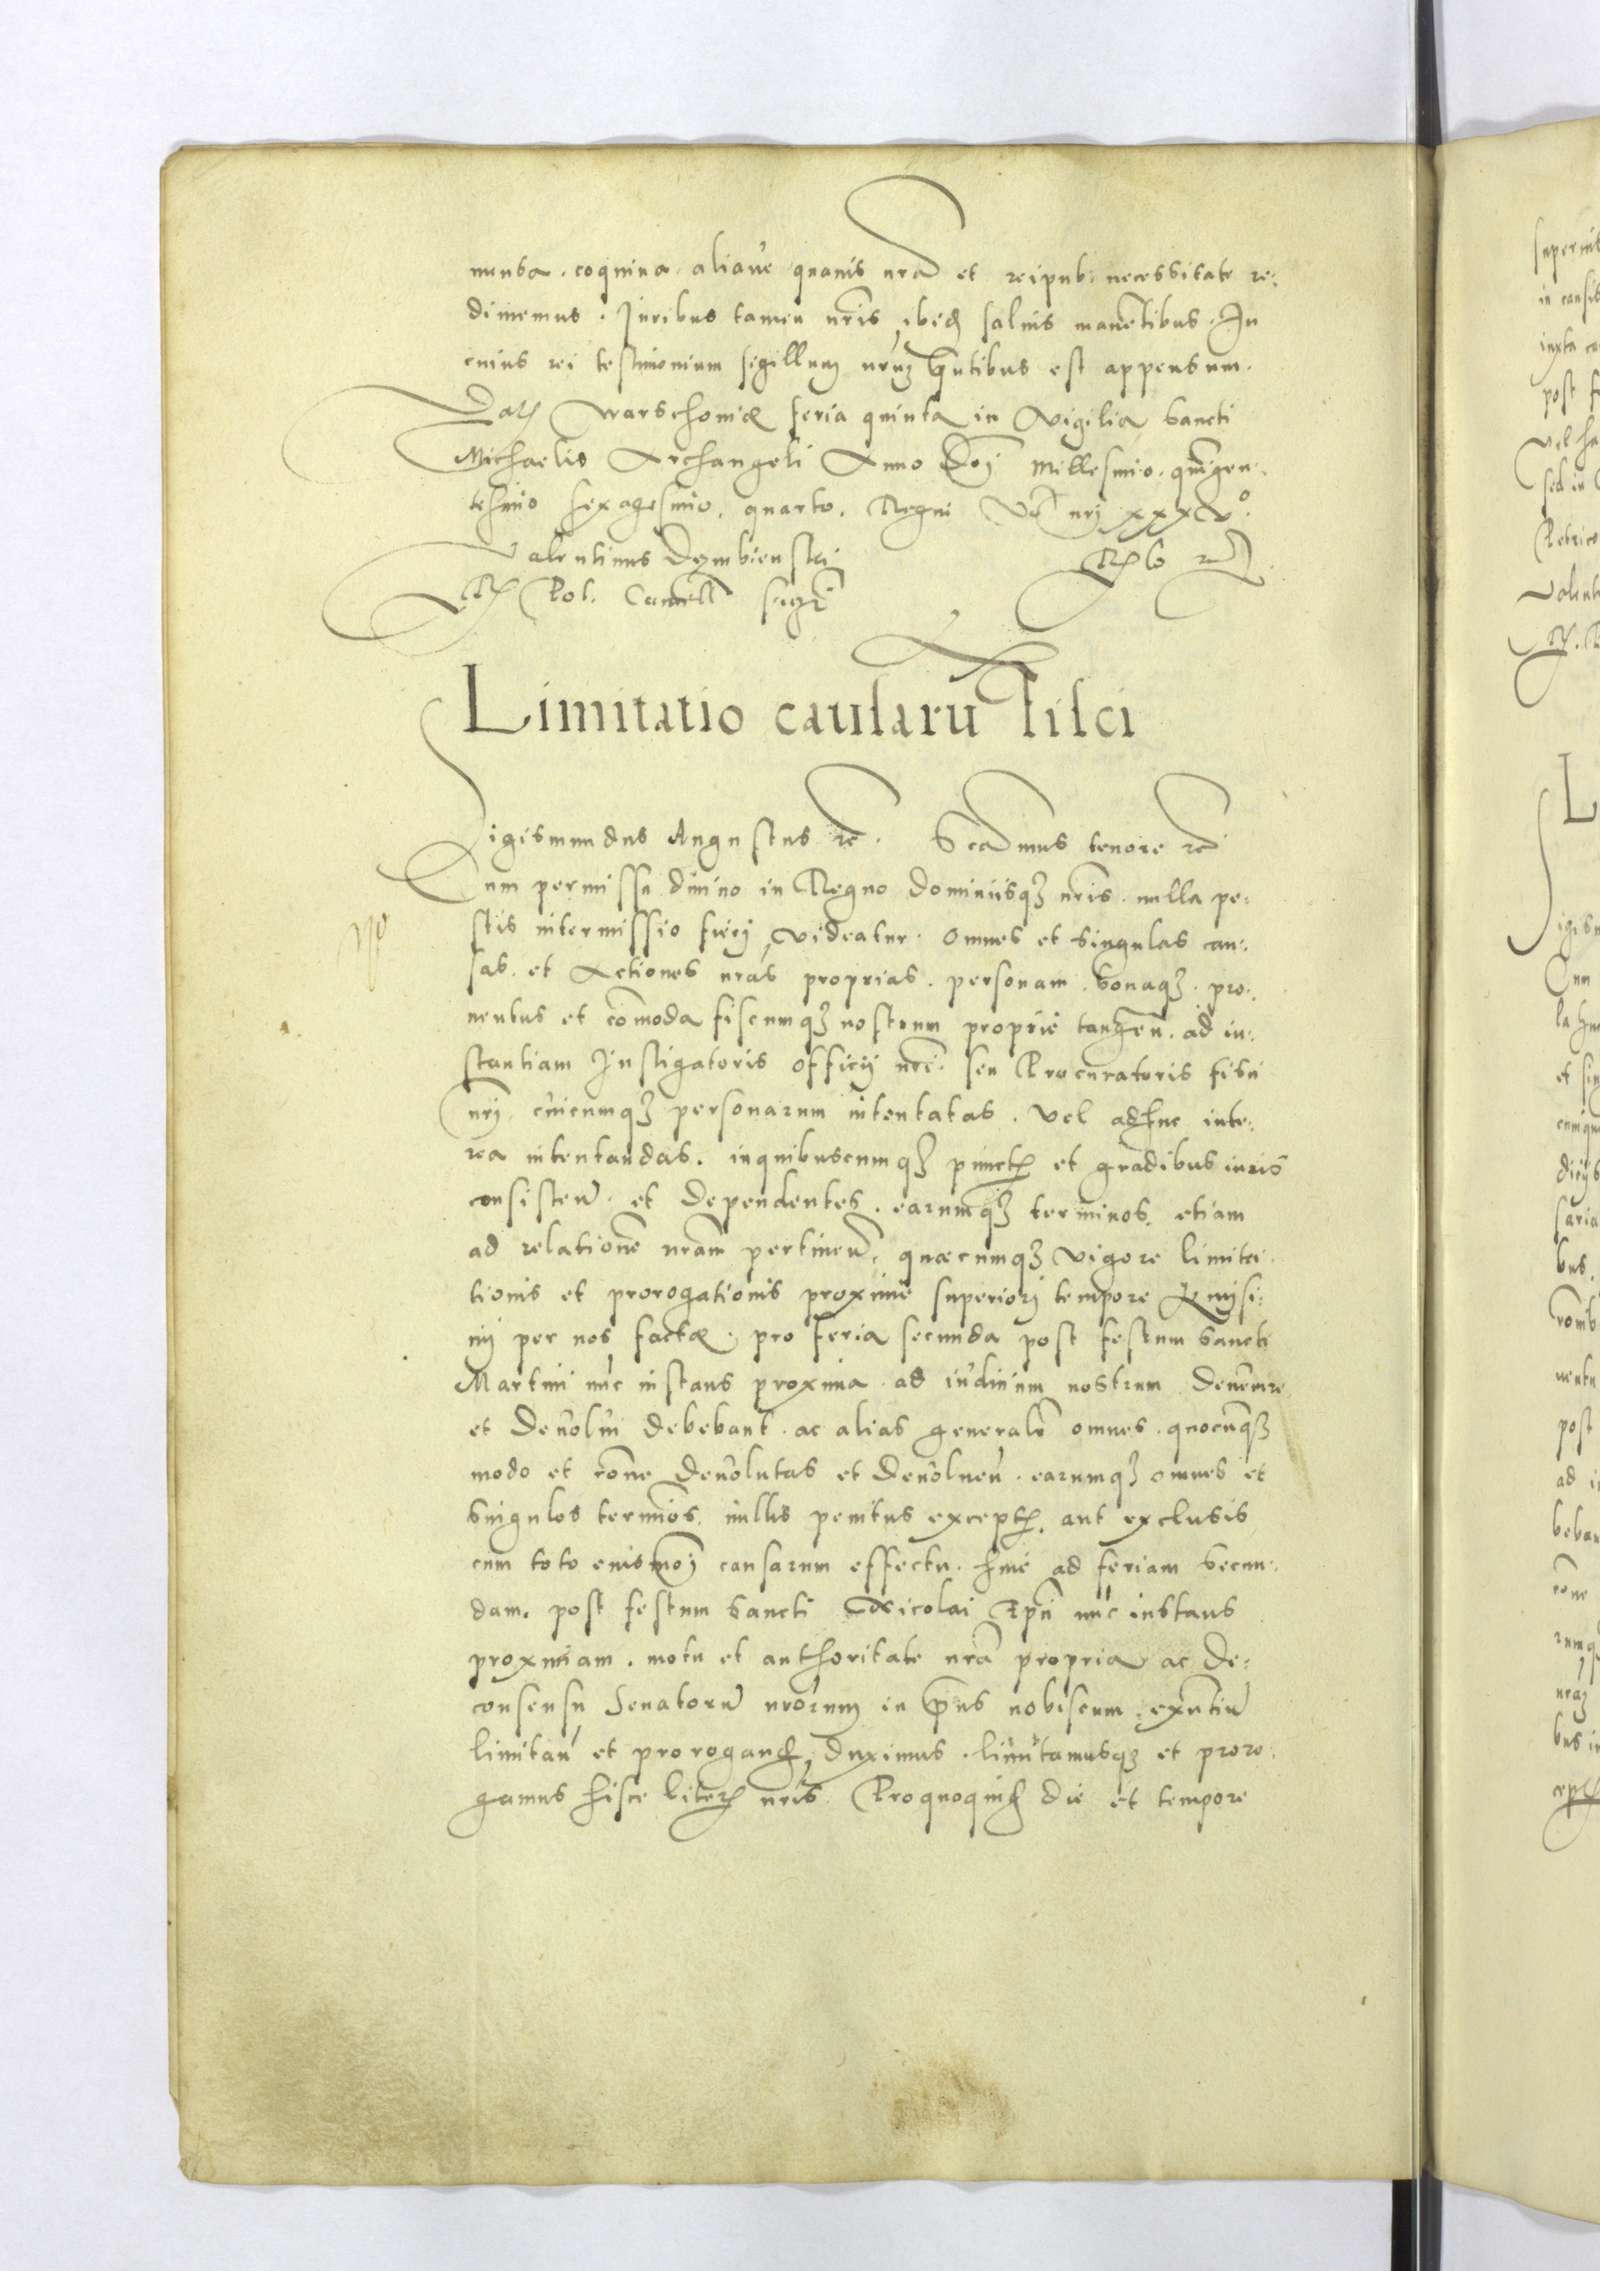 mensa. coquina. aliave quavis nra et reipub: necessitate re:
dimemus. Juribus tamen nris ibid salvis manetibus. In
cuius rei testimonium sigillum nrum pntibus est appensum.
Dat Warschoviæ feria quinta in Vigilia Sancti
Michaelis Archangeli Anno Doi Millesimo. quingen:
tesimo sexagesimo. quarto. Regni vo nri xxxvº.
Valentinus Dembienski
R. Pol. Cancell
Limitatio causaru fisci
Sigismundus Augustus rc. Sca mus tenore rc
Cum permissu divino in Regno dominiisq3 nris. nulla pe:
stis intermissio fieri videatur. Omnes et singulas cau:
sas. et Actiones nras proprias. personam. bonaq3. pro:
ventus et comoda fiscumq3 nostrum proprie tangen. ad in:
stantiam Instigatoris officij nri. seu Procuratoris fisci
nri, cuicumq3 personarum intentatas. vel adhuc inte:
rea intentandas. inquibuscumq3 punct et gradibus iuris
consisten. et dependentes. earumq3 terminos. etiam
ad relatione nram pertinen. quæcumq3 vigore limita:
tionis et prorogationis proxime superiori tempore
per nos factæ. pro feria secunda post festum Sancti
Martini nuc instans proxima. ad iudicium nostrum devenire
et devolvi debebant. ac alias generalr omnes. quocuq3
modo et rone devolutas et devolven. earumq3 omnes et
singulos terminos. nullis penitus except. aut exclusis
cum toto eiusmoi causarum effectu. hinc ad feriam secun:
dam. post festum Sancti Nicolai nuc instans
proximam. motu et authoritate nra propria ac de:
consensu Senatoru nrorum in pns nobiscum exntiu
limitan et prorogand duximus. limitamusq3 et proro:
gamus hisce liter nris. Proquoquid die et tempore